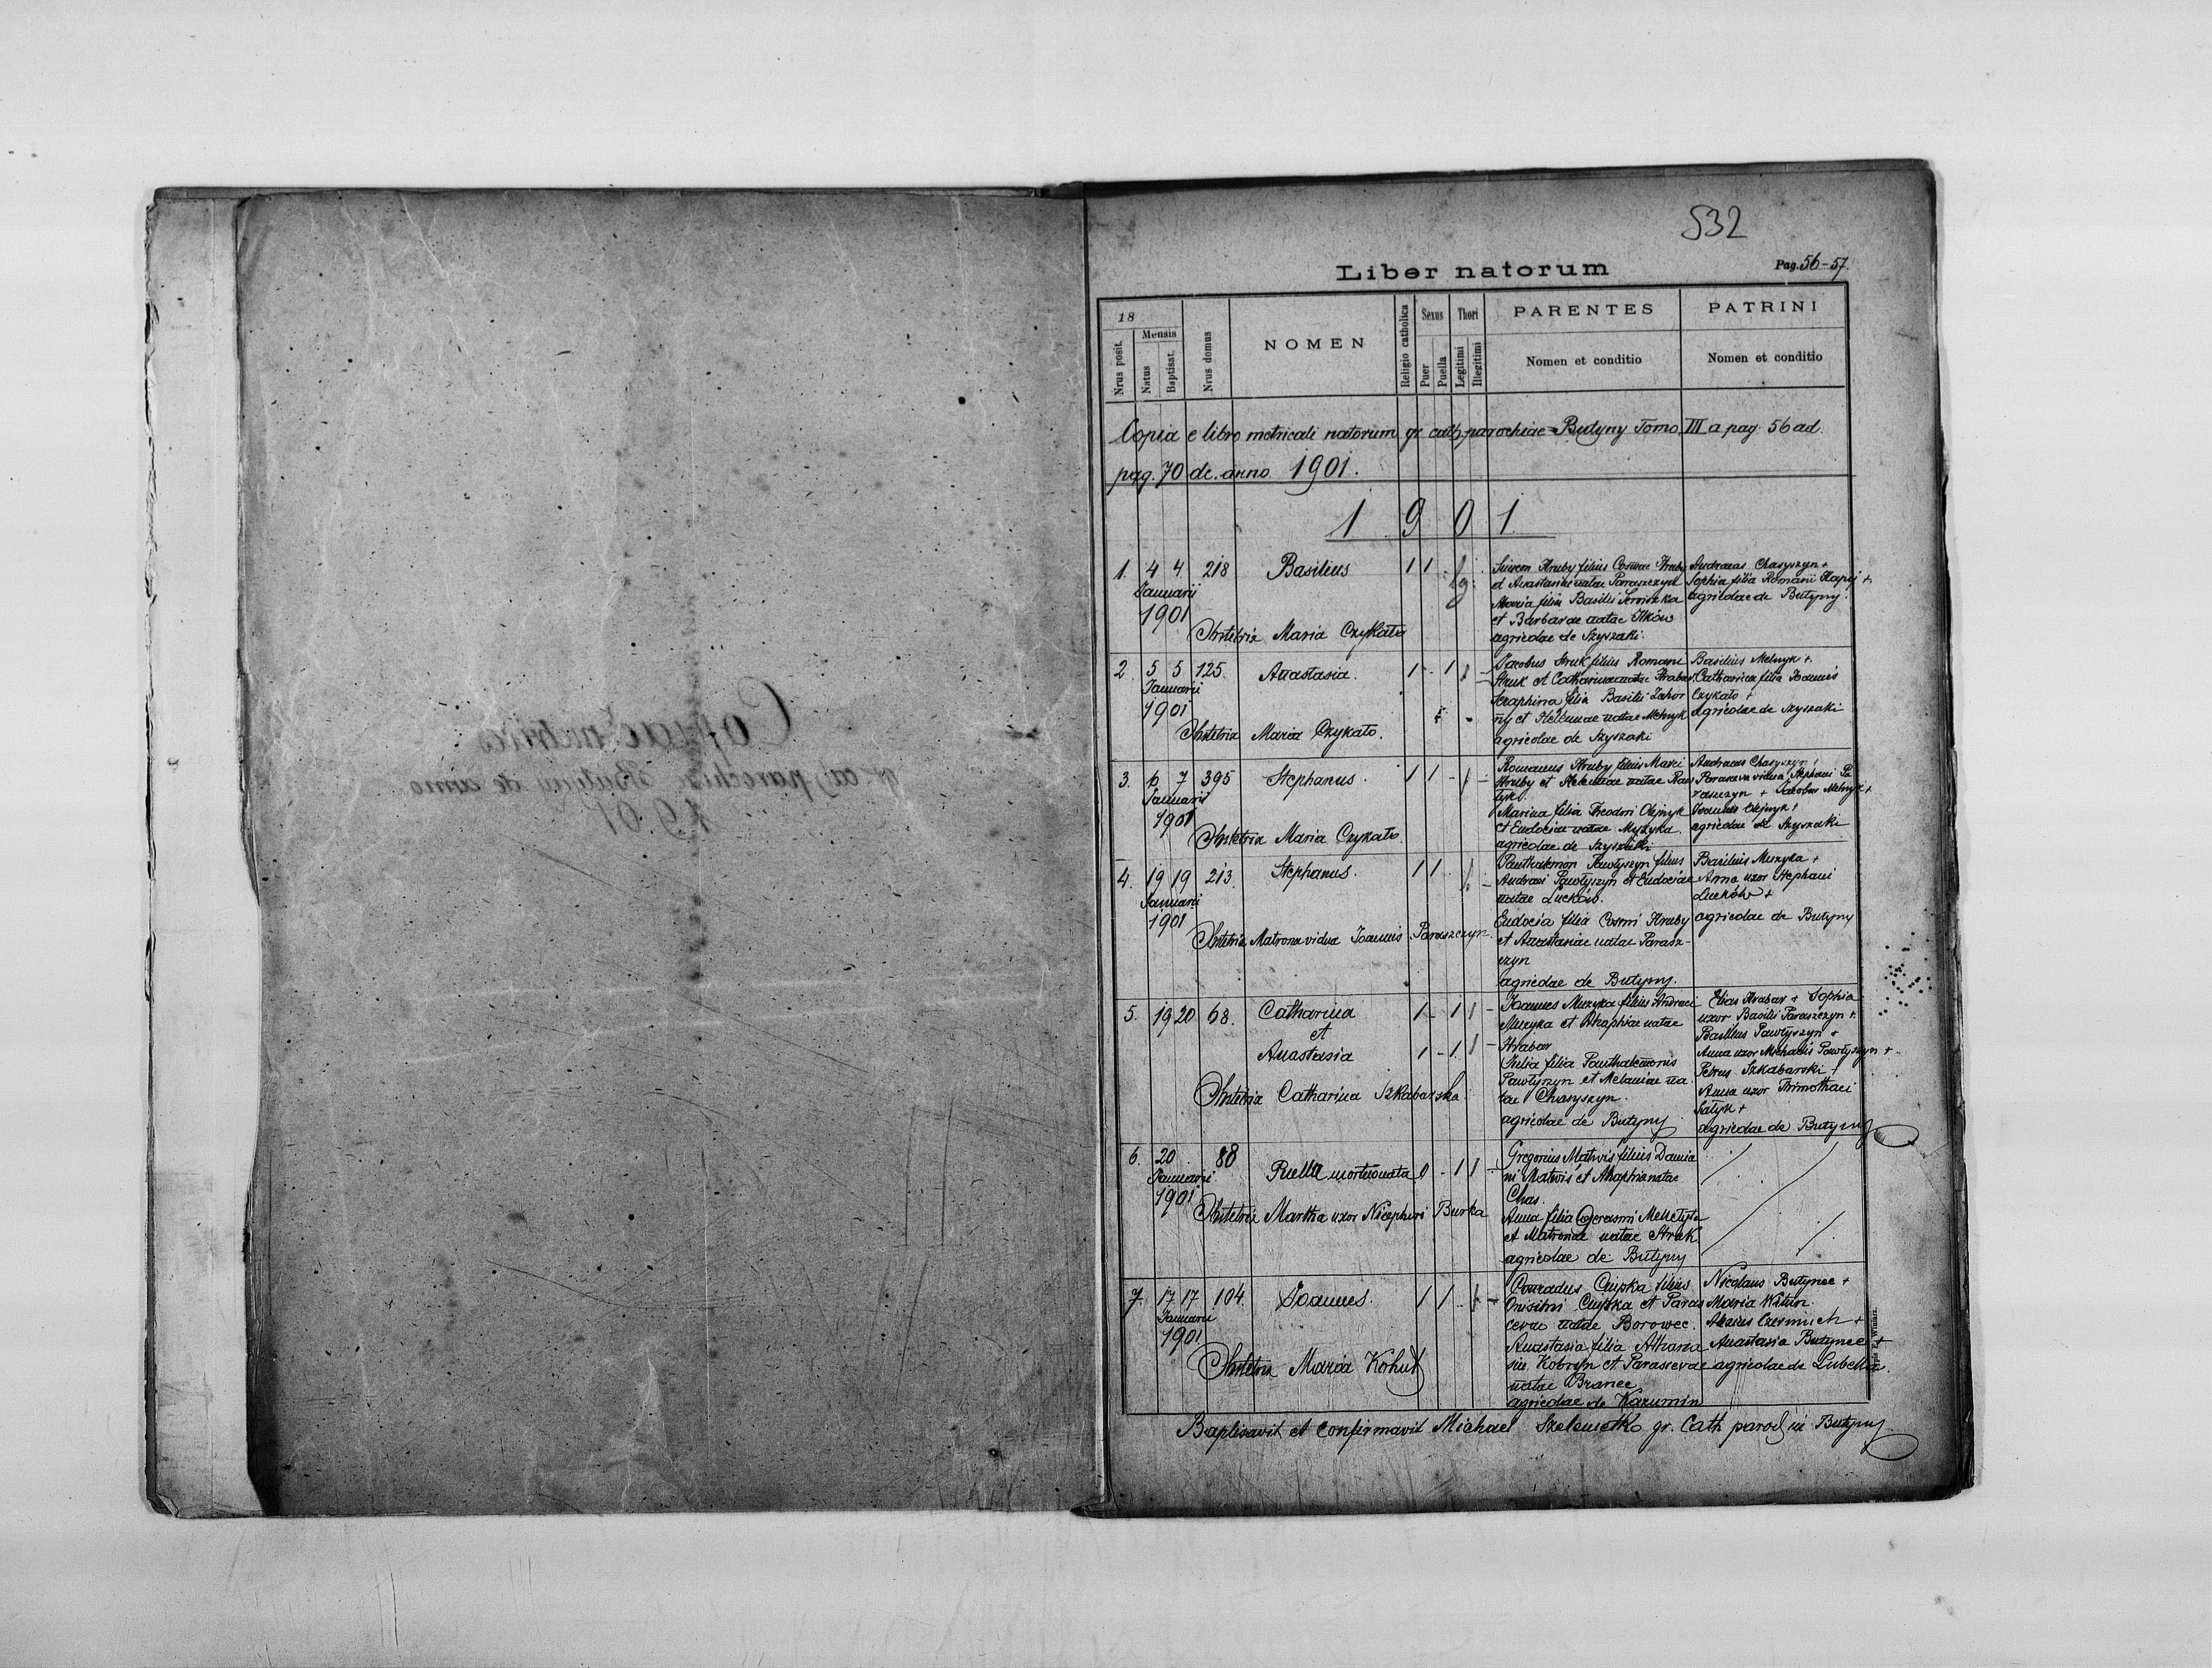 532
Liber natorum
Pag. 56-57.
18
Nrus posit.
Mensis
Natus
Baptisat.
Nrus domus
NOMEN
Religio catholica
Sexus
Puer
Puella
Thori
Legitimi
Illegitimi
PARENTES
Nomen et conditio
PATRINI
Nomen et conditio
Copia e libro metricali natorum gr. cath. parochiae Butyny Tomo III a pag. 56 ad
pag. 70 de anno 1901.
1901.
1. 4 4 218 Basilius 1 1
Januarii
1901
Obstetrix Maria Czykało
Simeon Hruby filius Cosmae Hruby
et Anastasiae natae Paraszczyn
Maria filia Basilii
et Barbarae natae Ilków
agricolae de Szyszaki.
Andreas Chasyszyn +
Sophia filia Romani +
agricolae de Butyny.
2. 5 5 125. Anastasia. 1 - 1 1 -
Januarii
1901
Obstetrix Maria Czykało.
Jacobus Struk filius Romani
Struk et Catharinae natae Hrabar
Seraphina filia Basilii Zahor
ny et Helenae natae Melnyk
agricolae de Szyszaki
Basilius Melnyk +
Catharina filia Joannis
Czykało +
agricolae de Szyszaki
3. 6 7 395 Stephanus. 1 1 - 1 -
Januarii
1901
Obstetrix Maria Czykało.
Romanus Hruby filius Marci
Hruby et Helenae natae
Marina filia Theodori Olejnyk
et Eudociae natae Muzyka.
agricolae de Szyszaki
Andreas Chasyszyn +
Parasceva vidua Stephani Pa
raszczyn + Jacobus Melnyk +
Joannes Olejnyk +
agricolae de Szyszaki
4. 19 19 213. Stephanus. 1 1 - 1 -
Januarii
1901
Obstetrix Matrona vidua Joannis Paraszczyn.
Panthalemon Pawłyszyn filius
Andreae Pawłyszyn et Eudociae
natae Łuckiów.
Eudocia filia Cosmi Hruby
et Anastasiae natae Parasz-
czyn
agricolae de Butyny.
Basilius Muzyka +
Anna uxor Stephani
+
agricolae de Butyny
5. 19 20 68. Catharina 1 - 1 1 -
et
Anastasia 1 - 1 1 -
Obstetrix Catharina Szkabarska.
Joannes Muzyka filius Andreae
Muzyka et Ahaphiae natae
Hrabar
Julia filia Panthalemonis
Pawłyszyn et Melaniae na
tae Chasyszyn.
agricolae de Butyny
Elias Hrabar + Sophia
uxor Basilii Paraszczyn +
Basilius Pawłyszyn +
Anna uxor Michaelis Pawłyszyn +
Petrus Szkabarski +
Anna uxor Thimothaei
Sałyk +
agricolae de Butyny
6. 20 88 Puella mortuonata 0 - 1 1 -
Januarii
1901
Obstetrix Martha uxor Nicephori Burka
Gregorius Matwis filius Damia
ni Matwis et Ahaphiae natae
Chas.
Anna filia Gerasmi
et Matronae natae Struk
agricolae de Butyny
7. 17 17 104. Joannes. 1 1 - 1 -
Januarii
1901
Obstetrix Maria Kohut
Conradus filius
Onisimi et Paras
cevae natae Borowec.
Anastasia filia Athana
sii Kobryn et Parascevae
natae Branec
agricolae de Kazumin
Nicolaus Butynec +
Maria
Alexius +
Anastasia Butynec +
agricolae de Lubella.
Baptisavit et Confirmavit Michael gr. Cath. paroch in Butyny